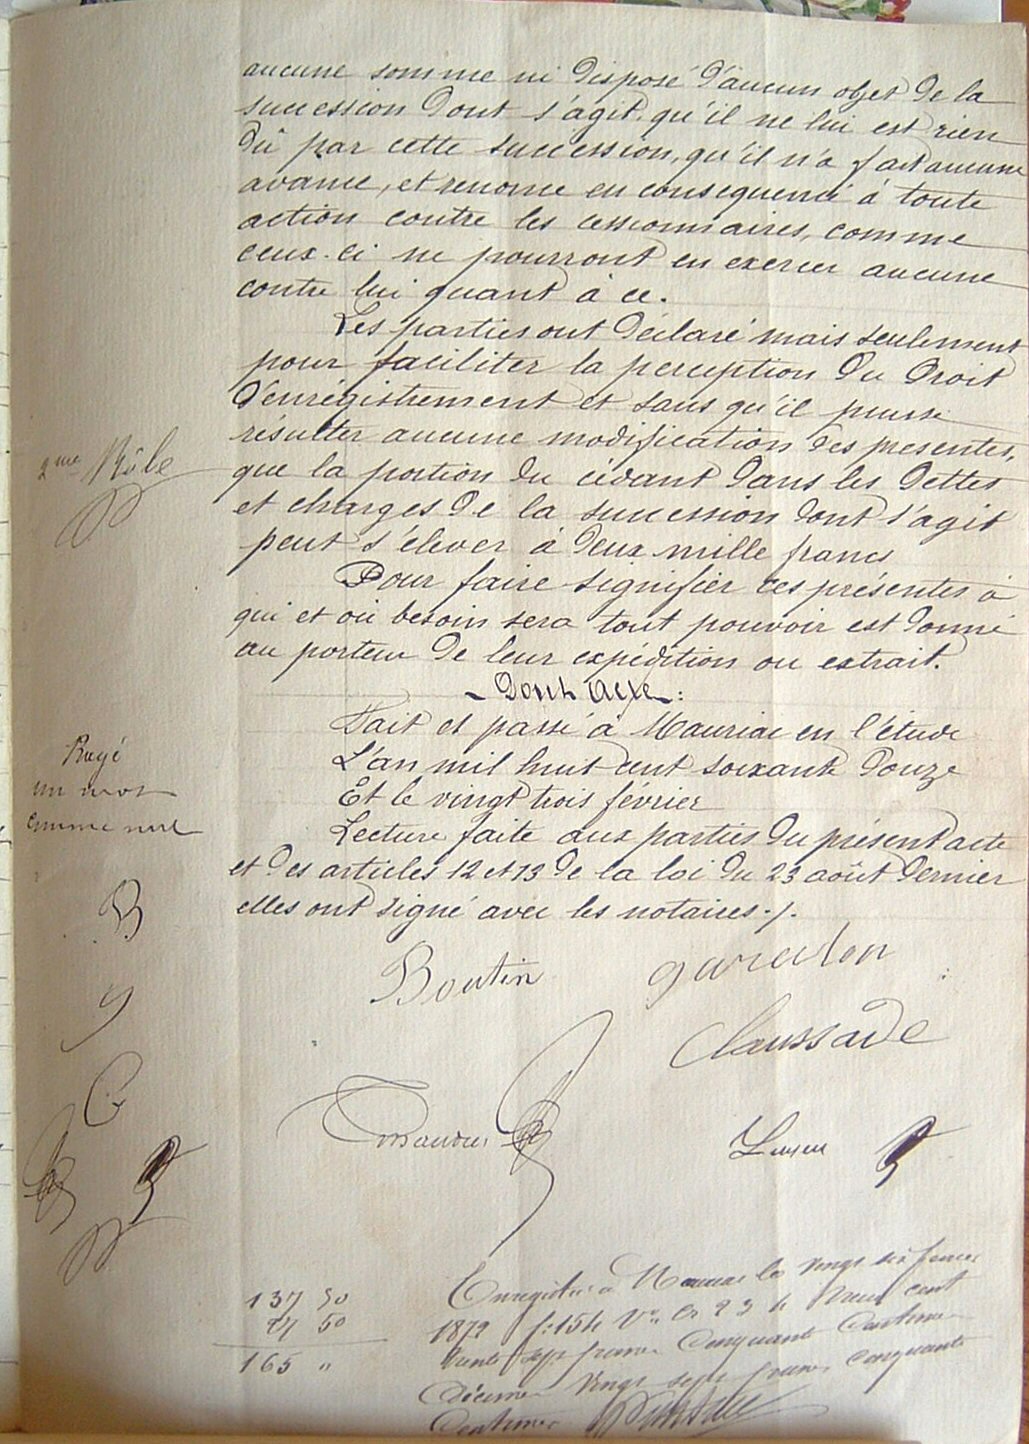 aucune somme ni disposé d'aucun objet de la
succession dont s'agit, qu'il ne lui est rien
dû par cette succession, qu'il n'a fait aucune
avance, et renonce en consequence à toute
action contre les cessionnaires, comme
ceux-ci ne pourront en exercer aucune
contre lui quant à ce.
Les parties ont déclaré mais seulement
pour faciliter la perception du droit
d'enrégistrement et sans qu'il puisse
résulter aucune modification des presentes,
que la portion du cédant dans les dettes
et charges de la succession dont s'agit
peut s'élever à deux mille francs
Pour faire signifier ces présentes à
qui et où besoin sera tout pouvoir est donné
au porteur de leur expédition ou extrait.
- Dont acte :
Fait et passé à Mauriac en l'étude
L'an mil huit cent soixante douze
Et le vingt trois février
Lecture faite aux parties du présent acte
et des articles 12 et 13 de la loi du 23 août dernier
elles ont signé avec les notaires ./.
2me Rôle
Rayé
un mot
comme nul
B
g
C
Boutin
Claussade
137 50
27 50
165 "
Enregistré à Mauriac le vingt six février
1872 f: 154 Vo C 2 3 cent
trente sept francs cinquante centimes
décimes vingt sept francs cinquante
centimes